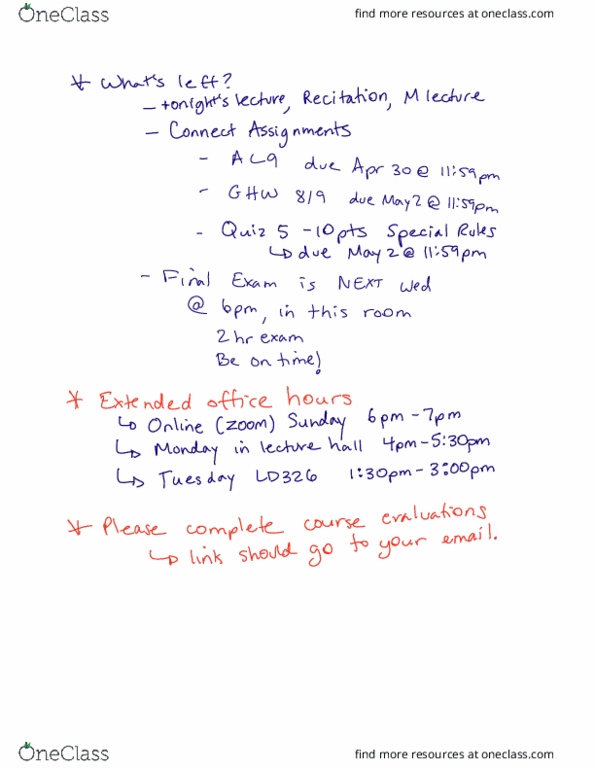 OneClass
find more resources at oneclass.com
* What's left?
- tonight's lecture, Recitation, M lecture
- Connect Assignments
- AL9 due Apr 30 @ 11:59pm
- GHW 8/9 due May 2 @ 11:59pm
- Quiz 5 - 10pts Special Rules
↳ due May 2 @ 11:59pm
- Final Exam is NEXT Wed
@ 6pm, in this room
2 hr exam
Be on time!
* Extended office hours
↳ Online (zoom) Sunday 6pm - 7pm
↳ Monday in lecture hall 4pm - 5:30pm
↳ Tuesday LD326 1:30pm - 3:00pm
* Please complete course evaluations
↳ link should go to your email.
OneClass
find more resources at oneclass.com